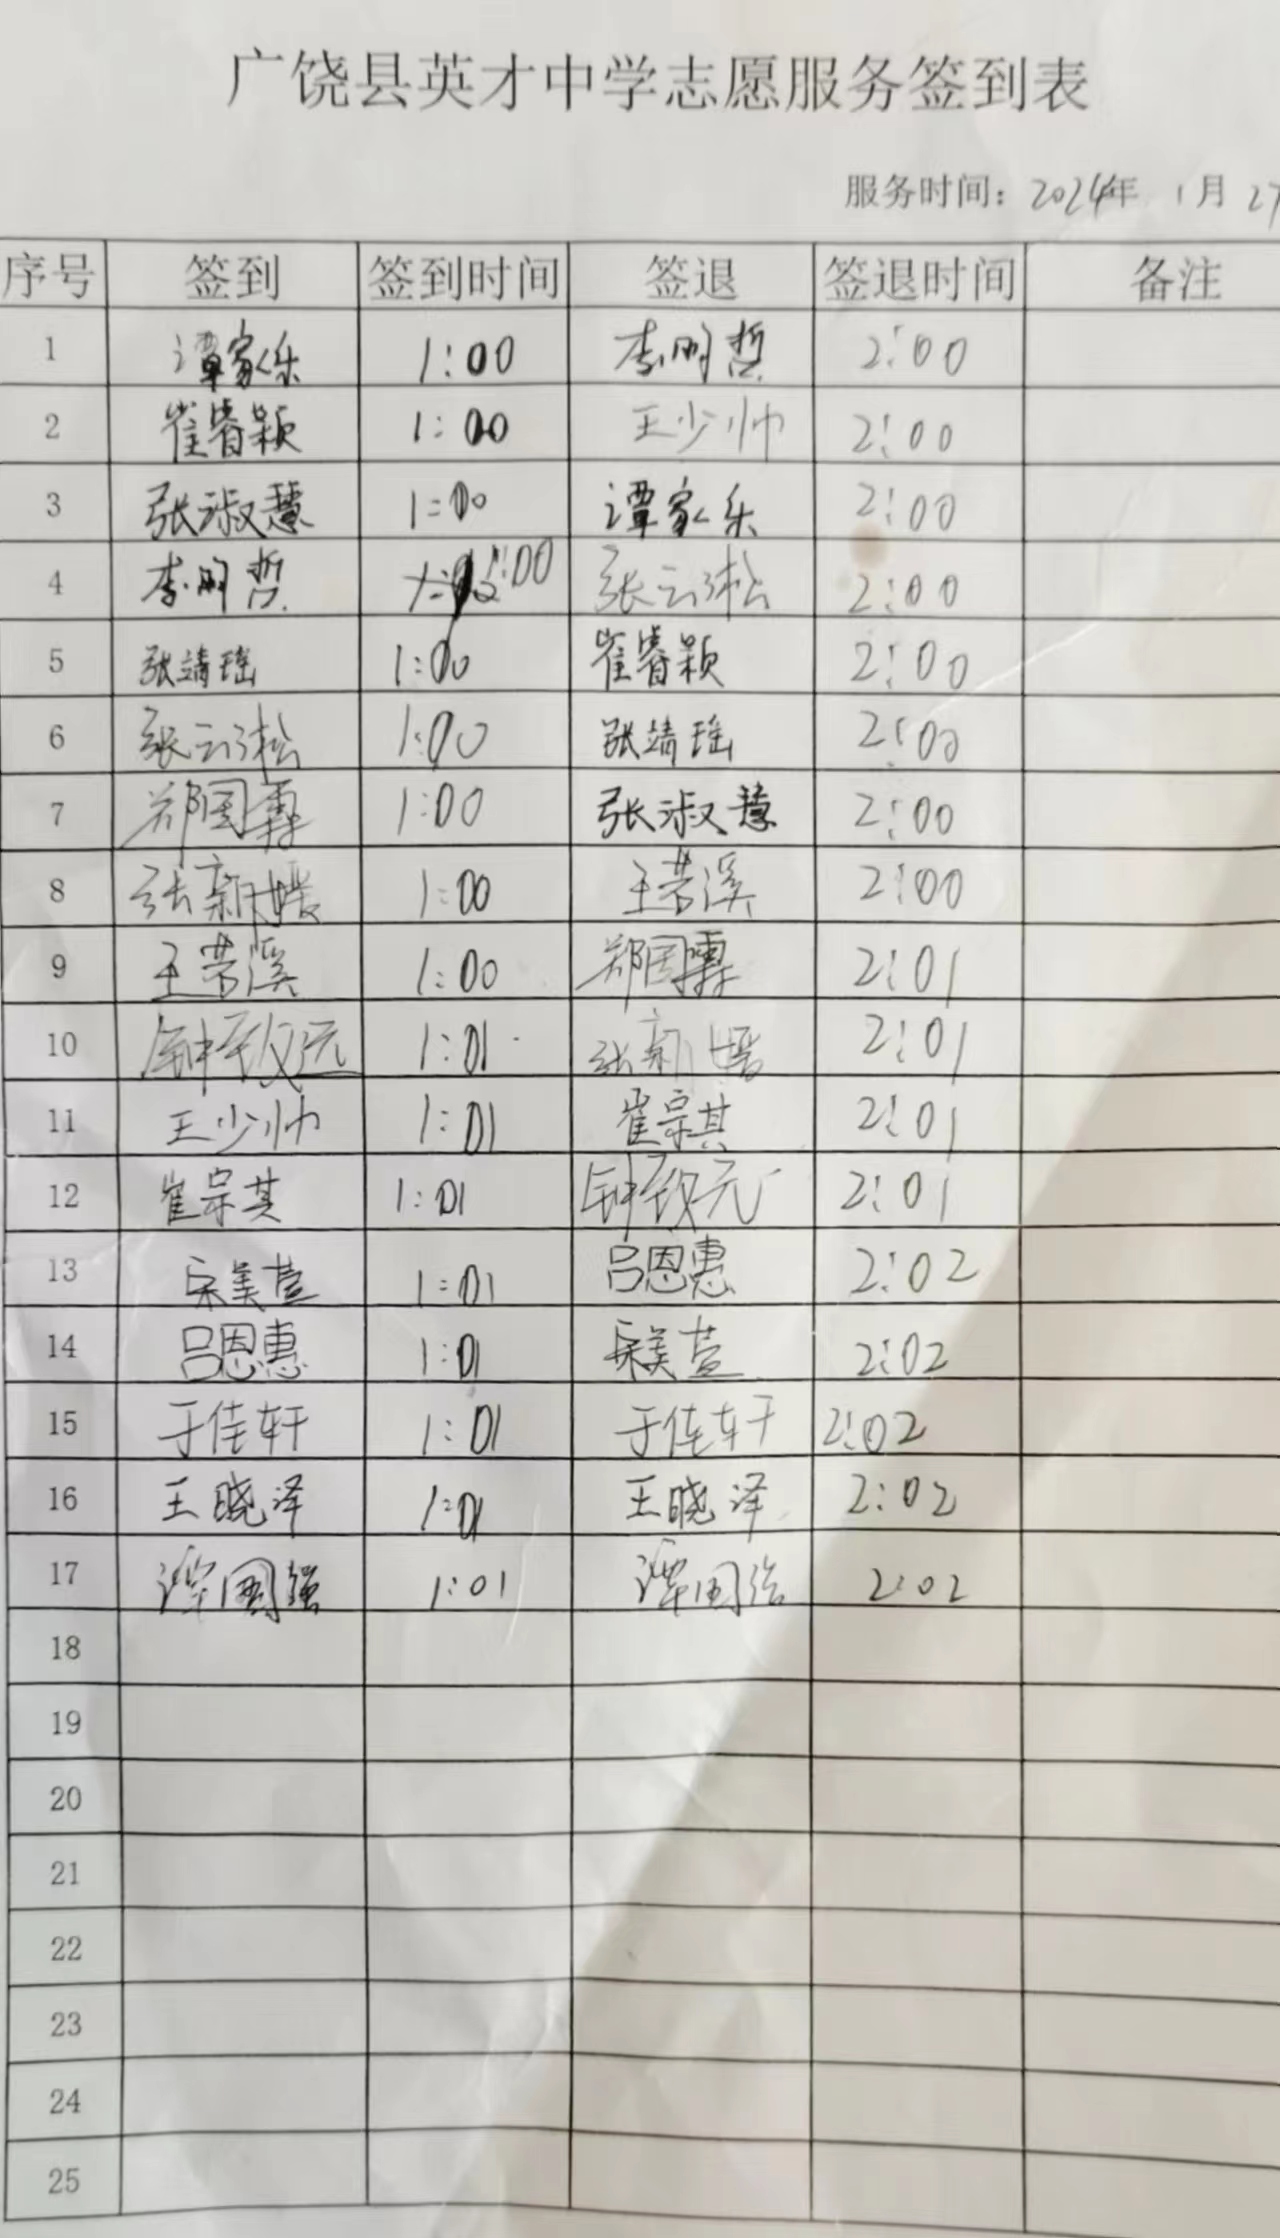 广饶县英才中学志愿服务签到表
服务时间：2024年 1月 27
序号 签到 签到时间 签退 签退时间 备注
1 谭家乐 1:00 李明哲 2:00
2 崔睿颖 1:00 王少帅 2:00
3 张淑慧 1:00 谭家乐 2:00
4 李明哲 1:00 张云松 2:00
5 张靖瑶 1:00 崔睿颖 2:00
6 张云松 1:00 张靖瑶 2:00
7 郑周霖 1:00 张淑慧 2:00
8 张新媛 1:00 王若溪 2:00
9 王若溪 1:00 郑周霖 2:01
10 钟致远 1:01 张新媛 2:01
11 王少帅 1:01 崔宗其 2:01
12 崔宗其 1:01 钟致元 2:01
13 宋美萱 1:01 吕恩惠 2:02
14 吕恩惠 1:01 宋美萱 2:02
15 于佳轩 1:01 于佳轩 2:02
16 王晓泽 1:01 王晓泽 2:02
17 谭国强 1:01 谭国强 2:02
18
19
20
21
22
23
24
25